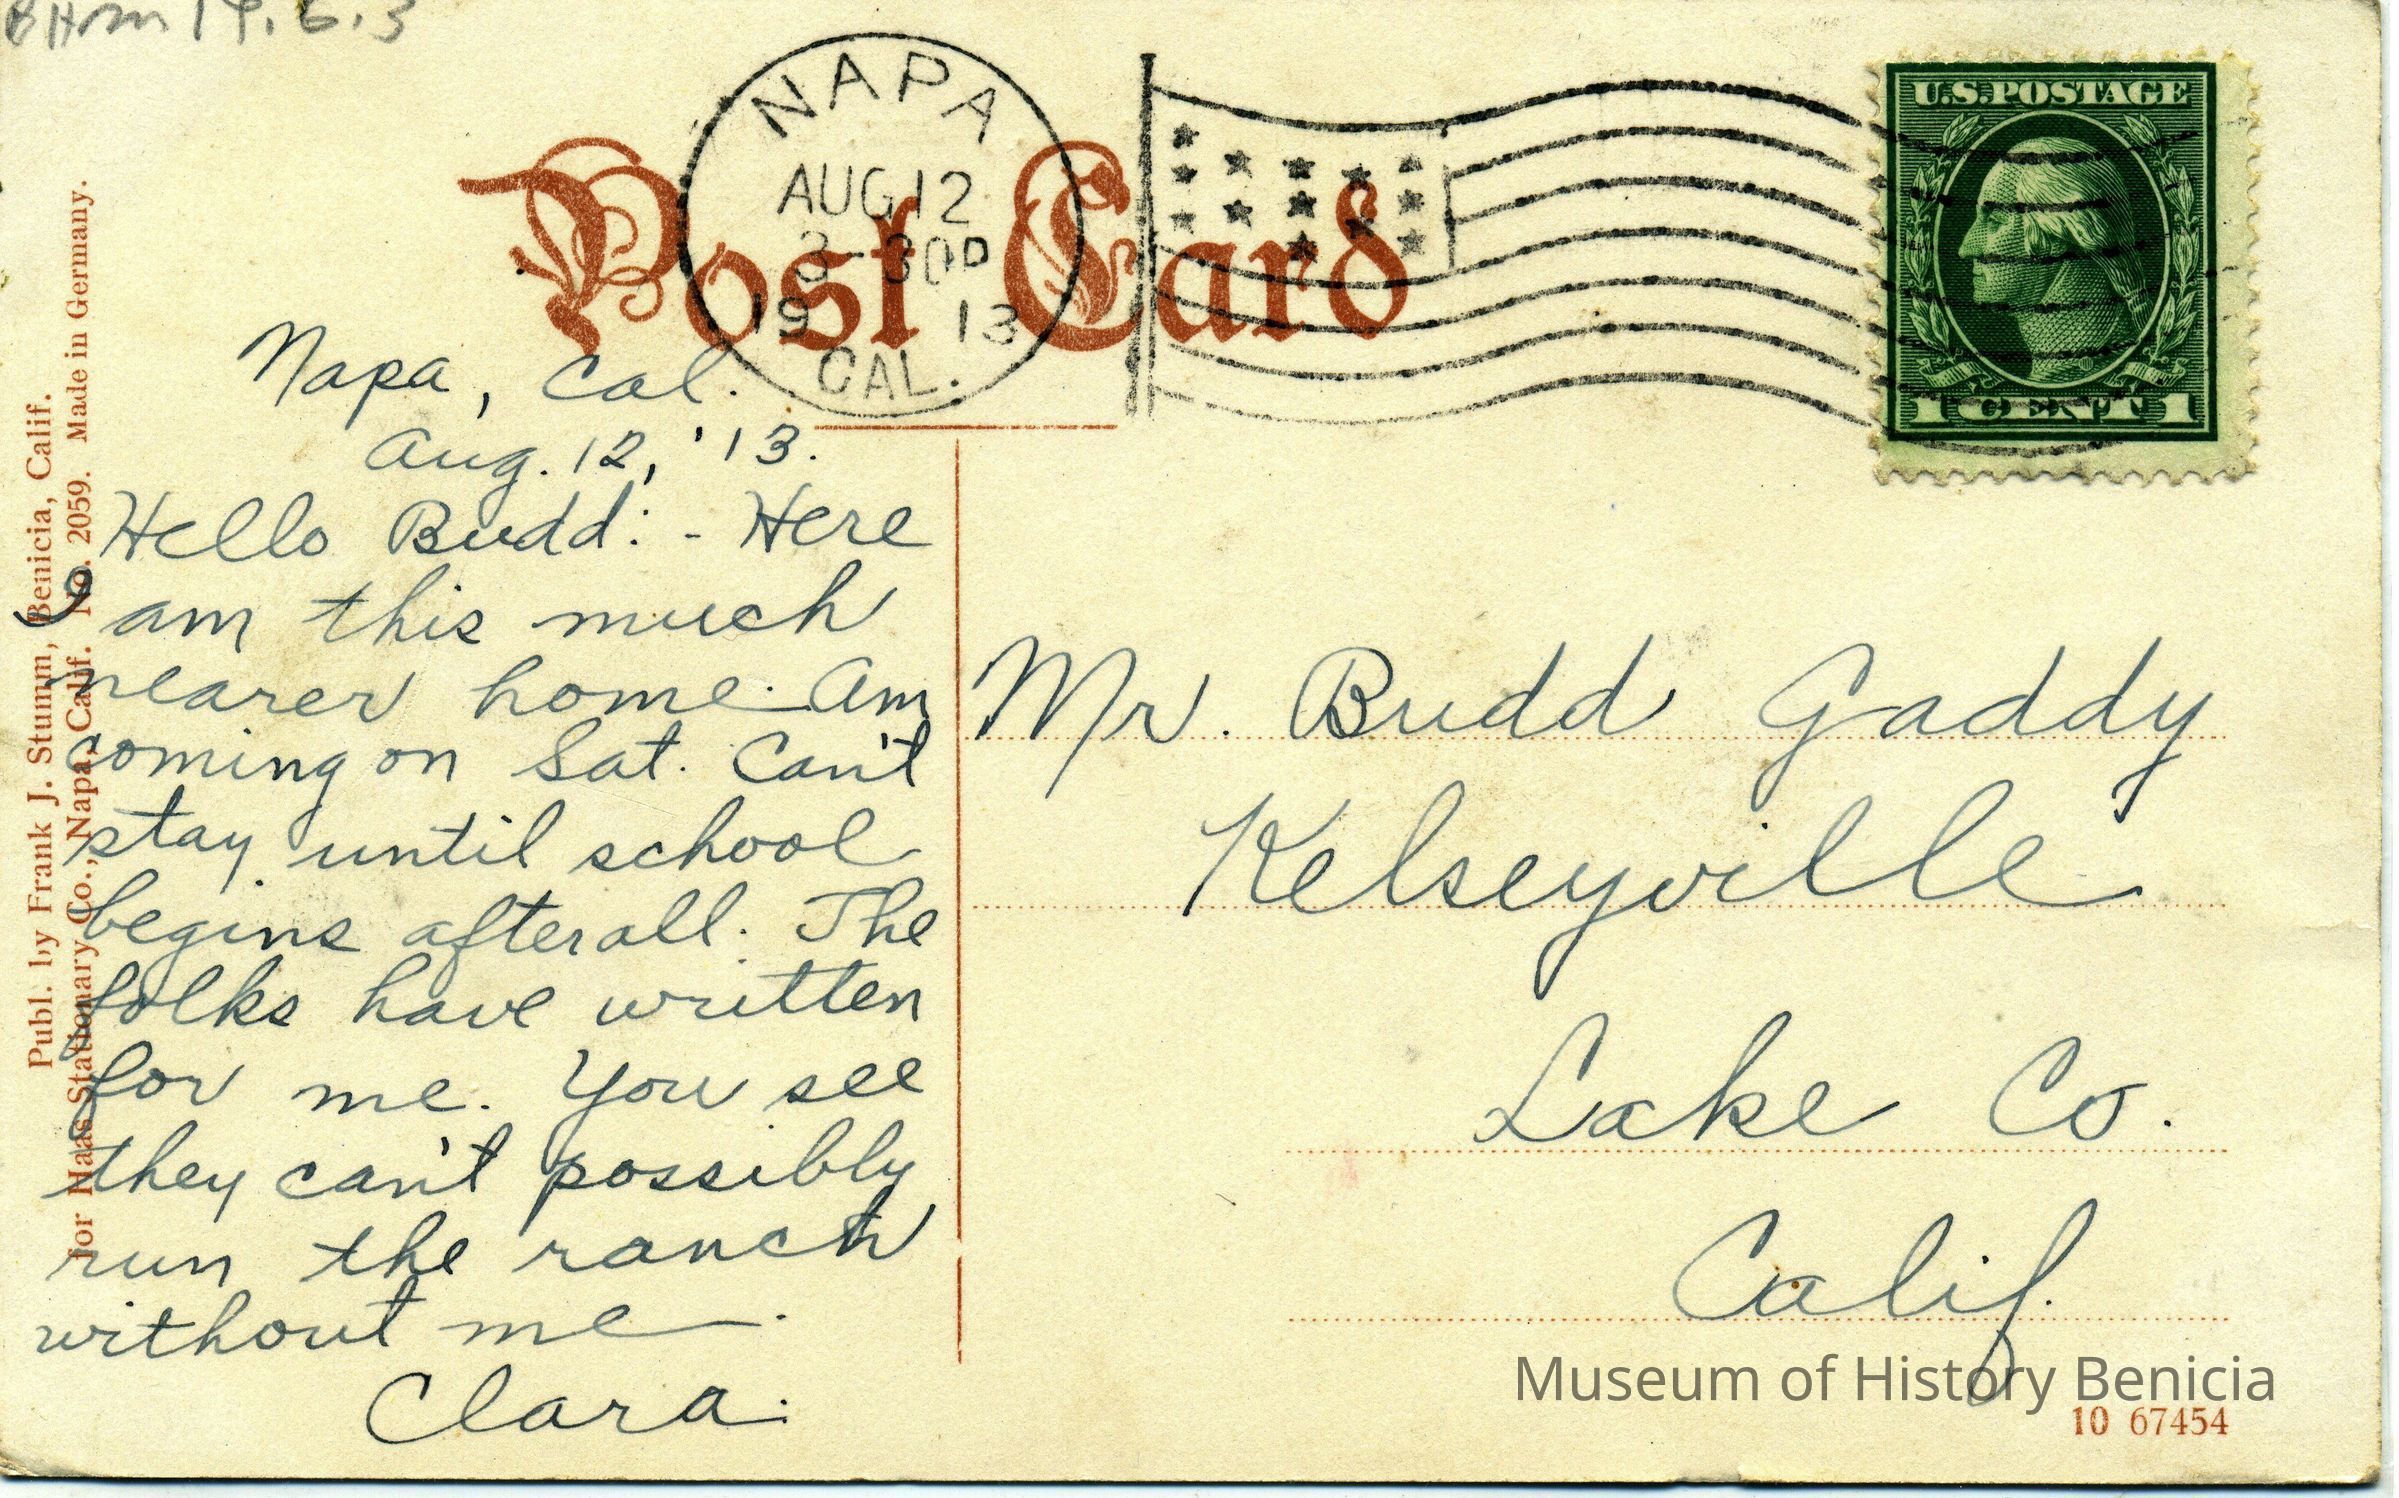 BHM 19.6.3
NAPA
AUG 12
3-30P
1913
CAL.
Post Card
U.S. POSTAGE
1 CENT 1
Publ. by Frank J. Stumm, Benicia, Calif.
for Haas Stationary Co., Napa, Calif. No. 2059. Made in Germany.
Napa, Cal.
Aug. 12, '13.
Hello Budd: - Here
I am this much
nearer home. Am
coming on Sat. Can't
stay until school
begins after all. The
folks have written
for me. You see
they can't possibly
run the ranch
without me.
Clara.
Mr. Budd Gaddy
Kelseyville
Lake Co.
Calif.
Museum of History Benicia
10 67454